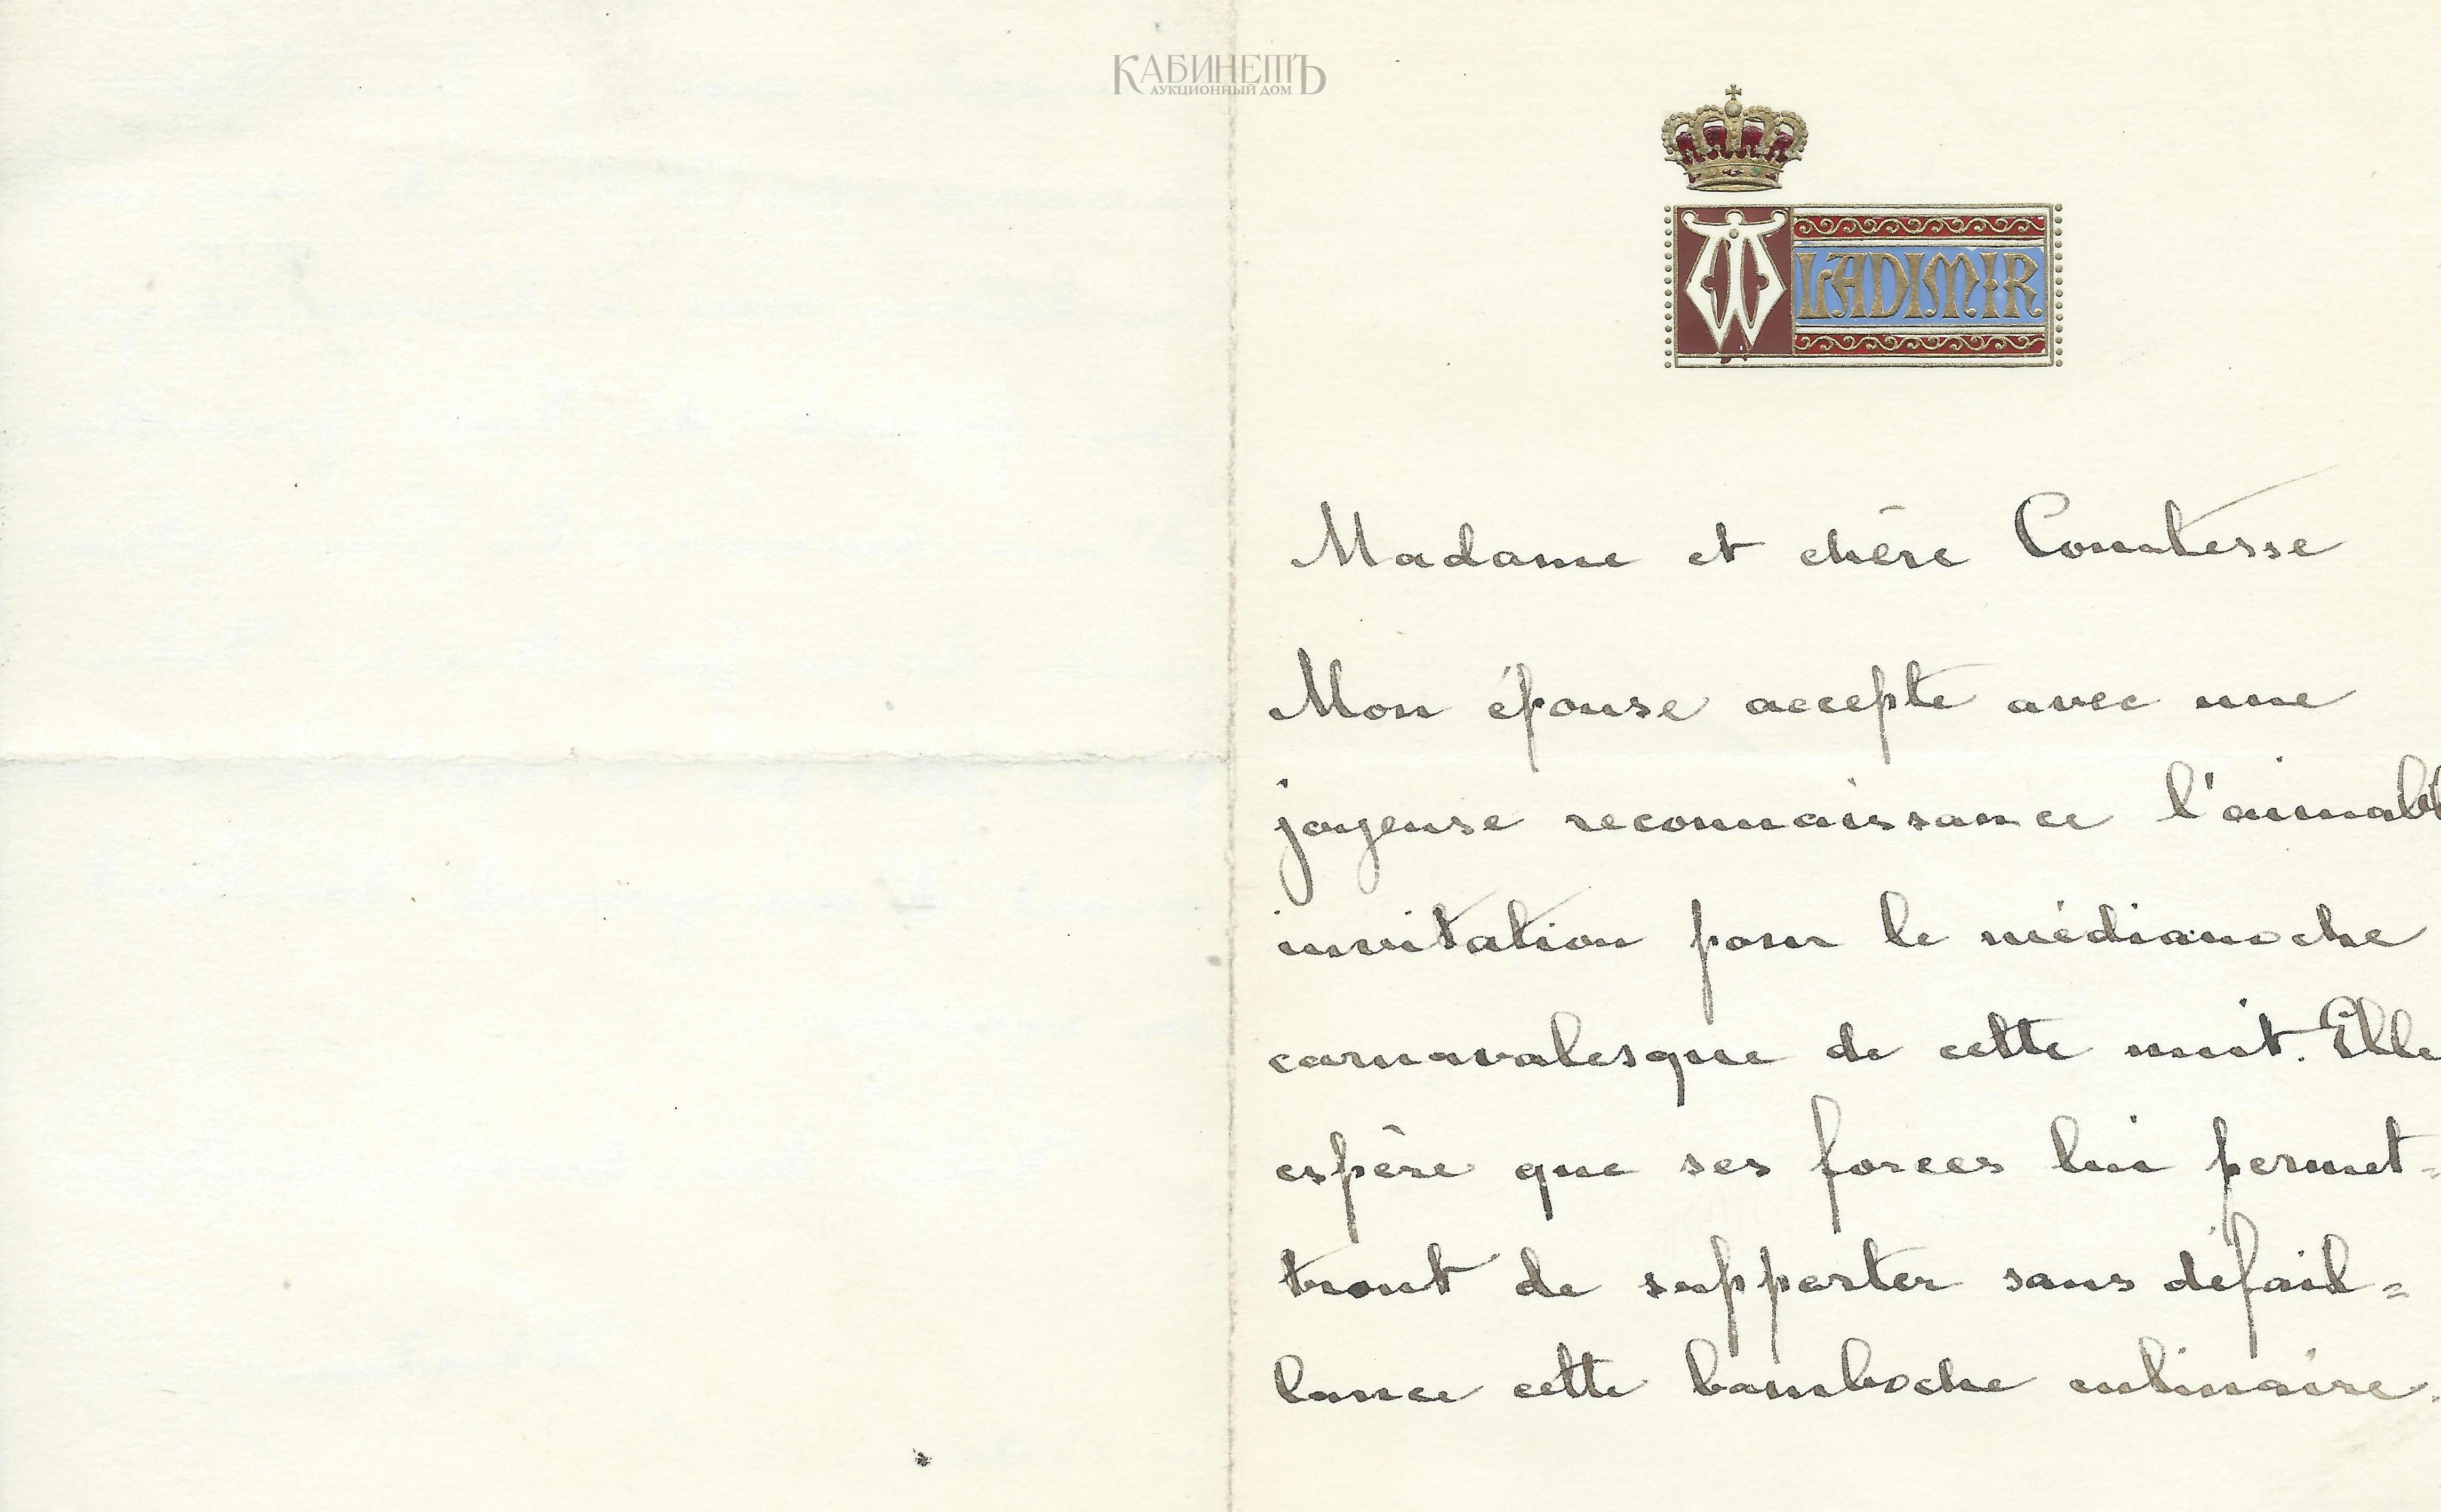 КАБИНЕТЪ
АУКЦИОННЫЙ ДОМ
WLADIMIR
Madame et chère Comtesse
Mon épouse accepte avec une
joyeuse reconnaissance l'aimabl
invitation pour le médianoche
carnavalesque de cette nuit. Elle
espère que ses forces lui permet=
tront de supporter sans défail=
lance cette bamboche culinaire.